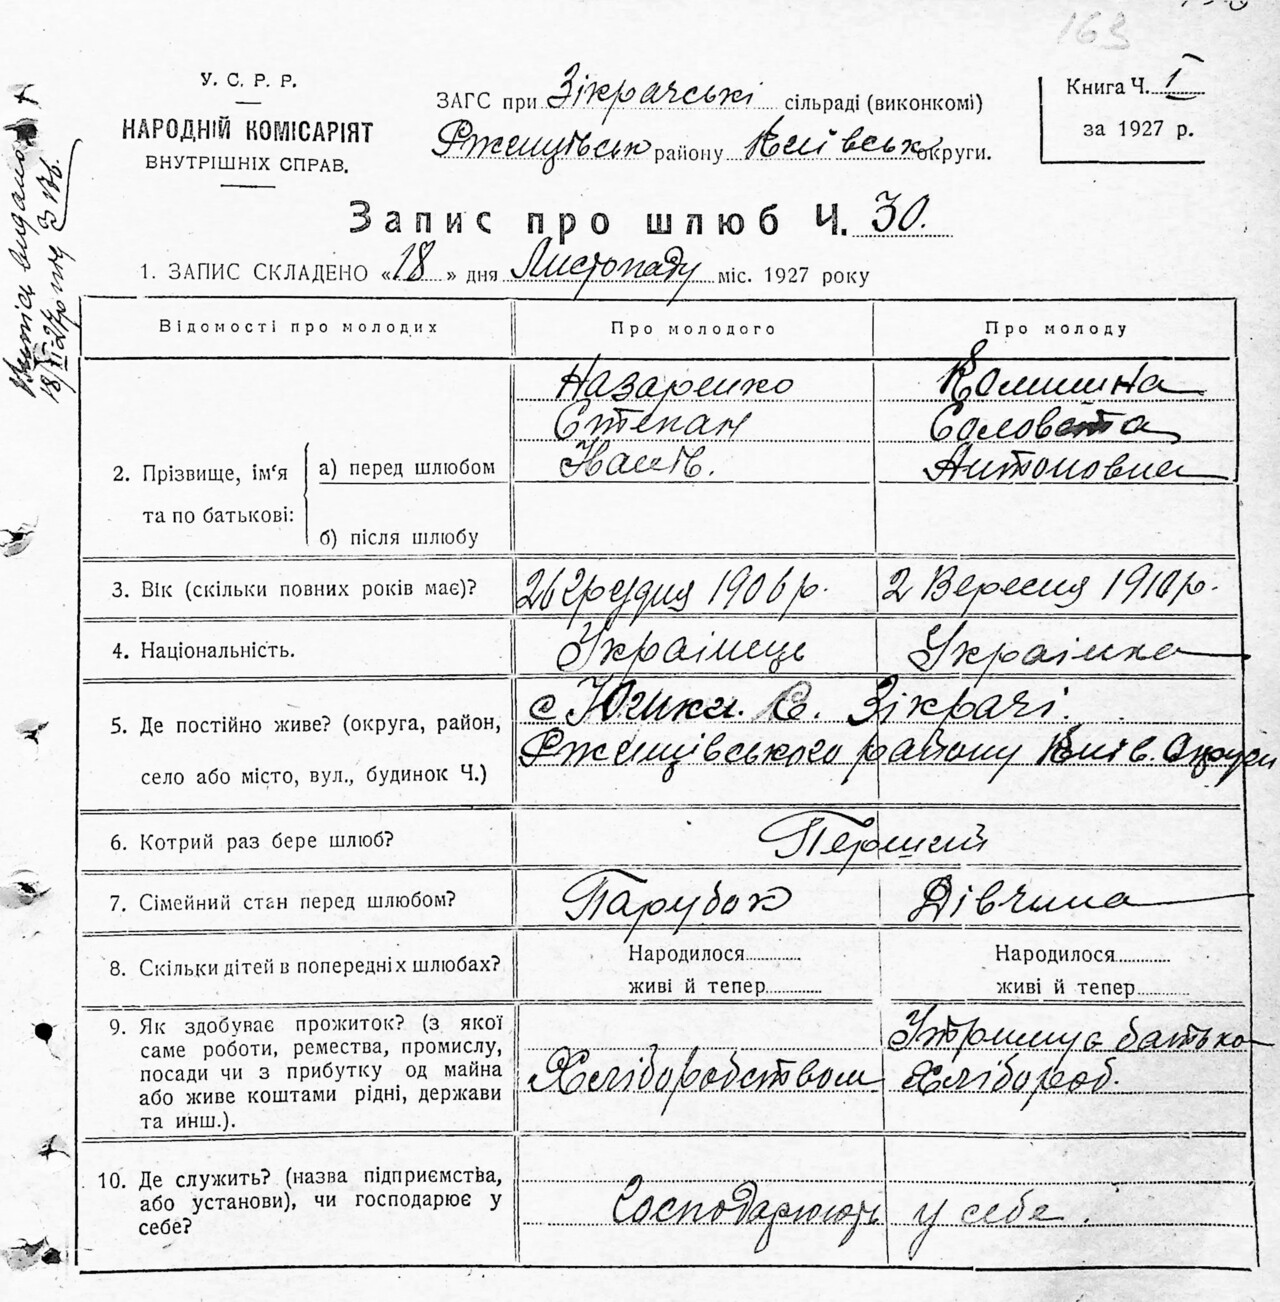 163
У. С. Р. Р.
НАРОДНІЙ КОМІСАРІЯТ
ВНУТРІШНІХ СПРАВ.
ЗАГС при Зікрачські сільраді (виконкомі)
Ржищівськ району Київськ округи.
Книга Ч. I
за 1927 р.
Запис про шлюб Ч. 30.
1. ЗАПИС СКЛАДЕНО «18» дня Листопаду міс. 1927 року
Відомості про молодих
Про молодого
Про молоду
2. Прізвище, ім'я
та по батькові:
а) перед шлюбом
б) після шлюбу
Назаренко
Степан
Іванів.
Антоновна
3. Вік (скільки повних років має)?
26 грудня 1906 р.
2 Вересня 1910 р.
4. Національність.
Українець
Українка
5. Де постійно живе? (округа, район,
село або місто, вул., будинок Ч.)
с Юшки. с. Зікрачі.
Ржищівського району Київ. Округи
6. Котрий раз бере шлюб?
Перший
7. Сімейний стан перед шлюбом?
Парубок
Дівчина
8. Скільки дітей в попередніх шлюбах?
Народилося
живі й тепер
Народилося
живі й тепер
9. Як здобуває прожиток? (з якої
саме роботи, ремества, промислу,
посади чи з прибутку од майна
або живе коштами рідні, держави
та инш.).
Хліборобством
Утримує батько
Хлібороб.
10. Де служить? (назва підприємства,
або установи), чи господарює у
себе?
Господарюють у себе.